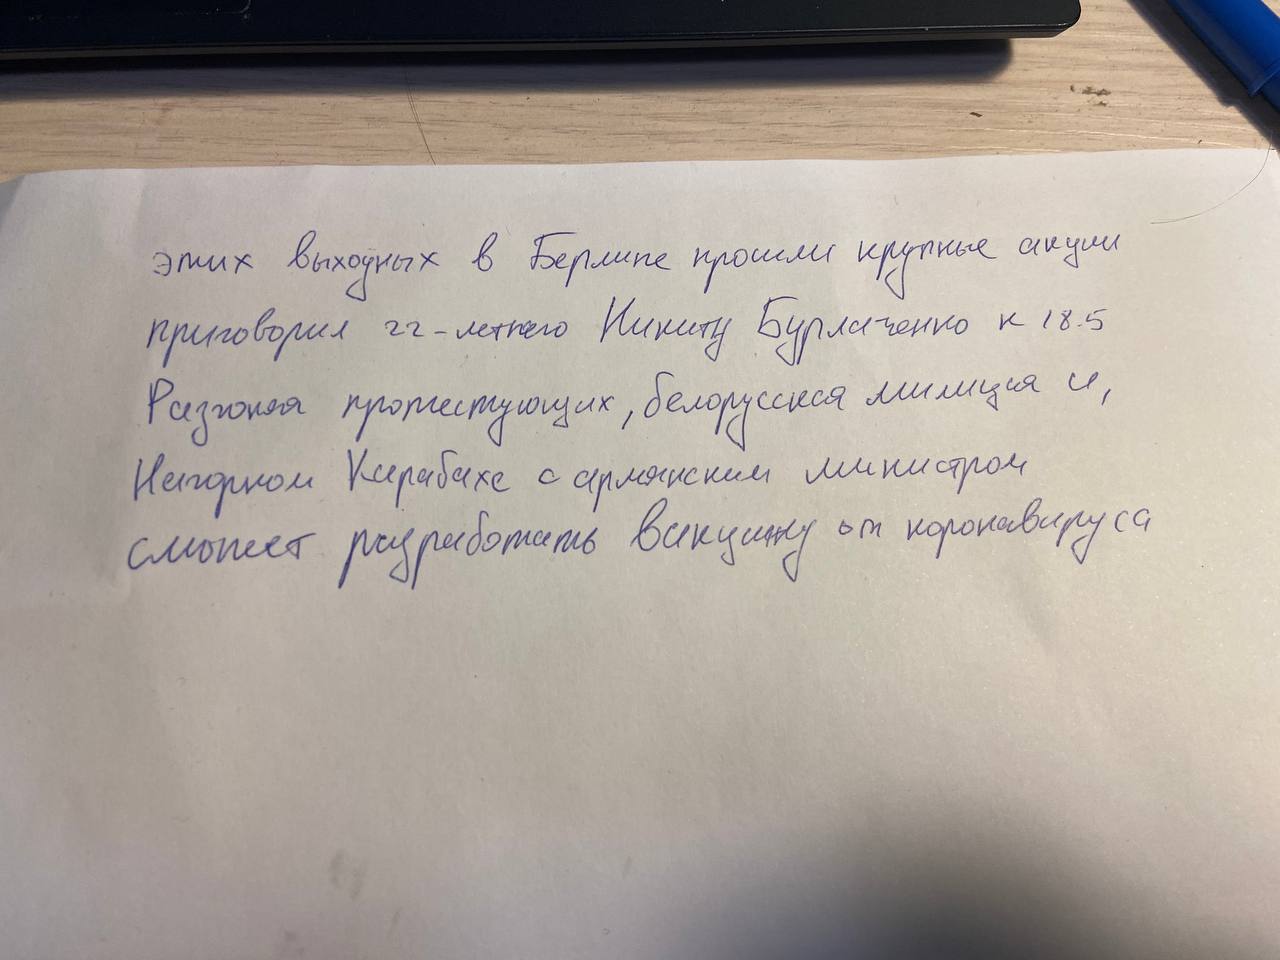 этих выходных в Берлине прошли крупные акции
приговорил 22-летнего Никиту Бурлаченко к 18.5
Разгоняя протестующих, белорусская милиция и,
Нагорном Карабахе с армянским министром
сможет разработать вакцину от коронавируса